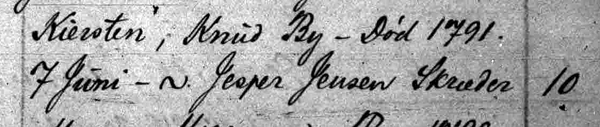 Kiersten", Knud By - Död 1791.
7 Juni - v. Jesper Jensen Skræder 10